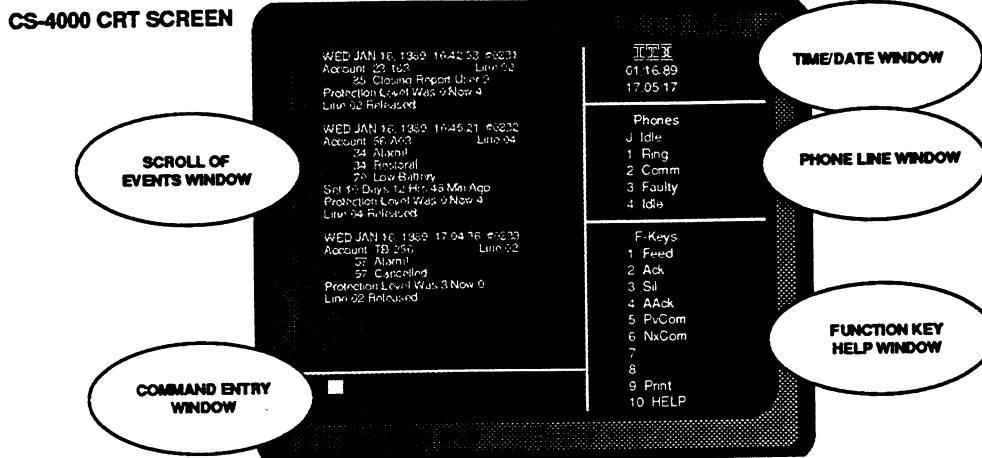 CS-4000 CRT SCREEN
WED JAN 16, 1989 16:42:53 #0231
Account 23 163 Line 02
85 Closing Report User 9
Protection Level Was 0 Now 4
Line 02 Released
WED JAN 16, 1989 16:45:21 #0232
Account 56 A03 Line 04
34 Alarm!
34 Restoral
79 Low Battery
Set 10 Days 12 Hrs 46 Min Ago
Protection Level Was 0 Now 4
Line 04 Released
WED JAN 16, 1989 17:04:36 #0233
Account TB 256 Line 02
57 Alarm!
57 Cancelled
Protection Level Was 3 Now 0
Line 02 Released
ITI
01.16.89
17.05.17
Phones
J Idle
1 Ring
2 Comm
3 Faulty
4 Idle
F-Keys
1 Feed
2 Ack
3 Sil
4 AAck
5 PvCom
6 NxCom
7
8
9 Print
10 HELP
TIME/DATE WINDOW
PHONE LINE WINDOW
FUNCTION KEY
HELP WINDOW
SCROLL OF
EVENTS WINDOW
COMMAND ENTRY
WINDOW